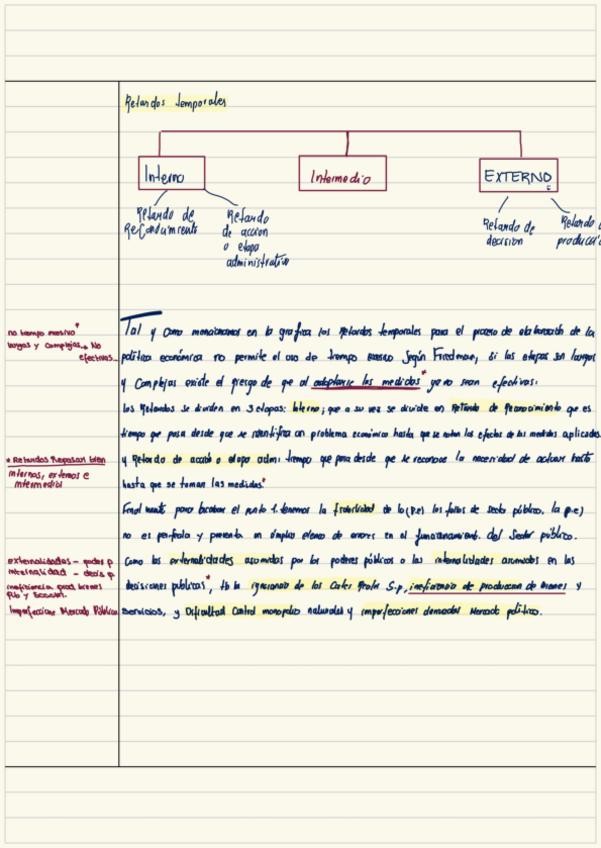 Retardos temporales
Interno
Intermedio
EXTERNO
Retardo de
Reconocimiento
Retardo
de accion
o etapa
administrativo
Retardo de
decision
Retardo d
producció
no tiempo
largas y complejas → No
efectivas
Tal y como mencionamos en la grafica los Retardos temporales para el proceso de elaboración de la
política económica no permite el uso de tiempo según Friedman, si las etapas son largas
y Complejas existe el riesgo de que al adoptarse las medidas* ya no sean efectivas:
los Retardos se dividen en 3 etapas: Interno; que a su vez se divide en Retardo de Reconocimiento que es
tiempo que pasa desde que se identifica un problema económico hasta que se notan los efectos de las medidas aplicadas
y Retardo de acción o etapa adm: tiempo que pasa desde que se reconoce la necesidad de actuar hasta
hasta que se toman las medidas*
* Retardos Repasar bien
internos, externos e
intermedios
Finalmente para acabar el punto 1. tenemos la de lo (P.e) los fallos de secto público, la p.e)
no es perfecta y presenta un amplio elenco de errores en el funcionamiento del Sector público.
Como las externalidades asumidas por los poderes públicos o las internalidades asumidas en las
decisiones publicas*, tb la ignorancia de los S.p, ineficiencia de produccion de bienes y
servicios, y Dificultad Control monopolio naturales y imperfecciones Mercado político.
externalidades - poder p
internalidad - decis p
ineficiencia prod. bienes
Imperfeccione Mercado Público